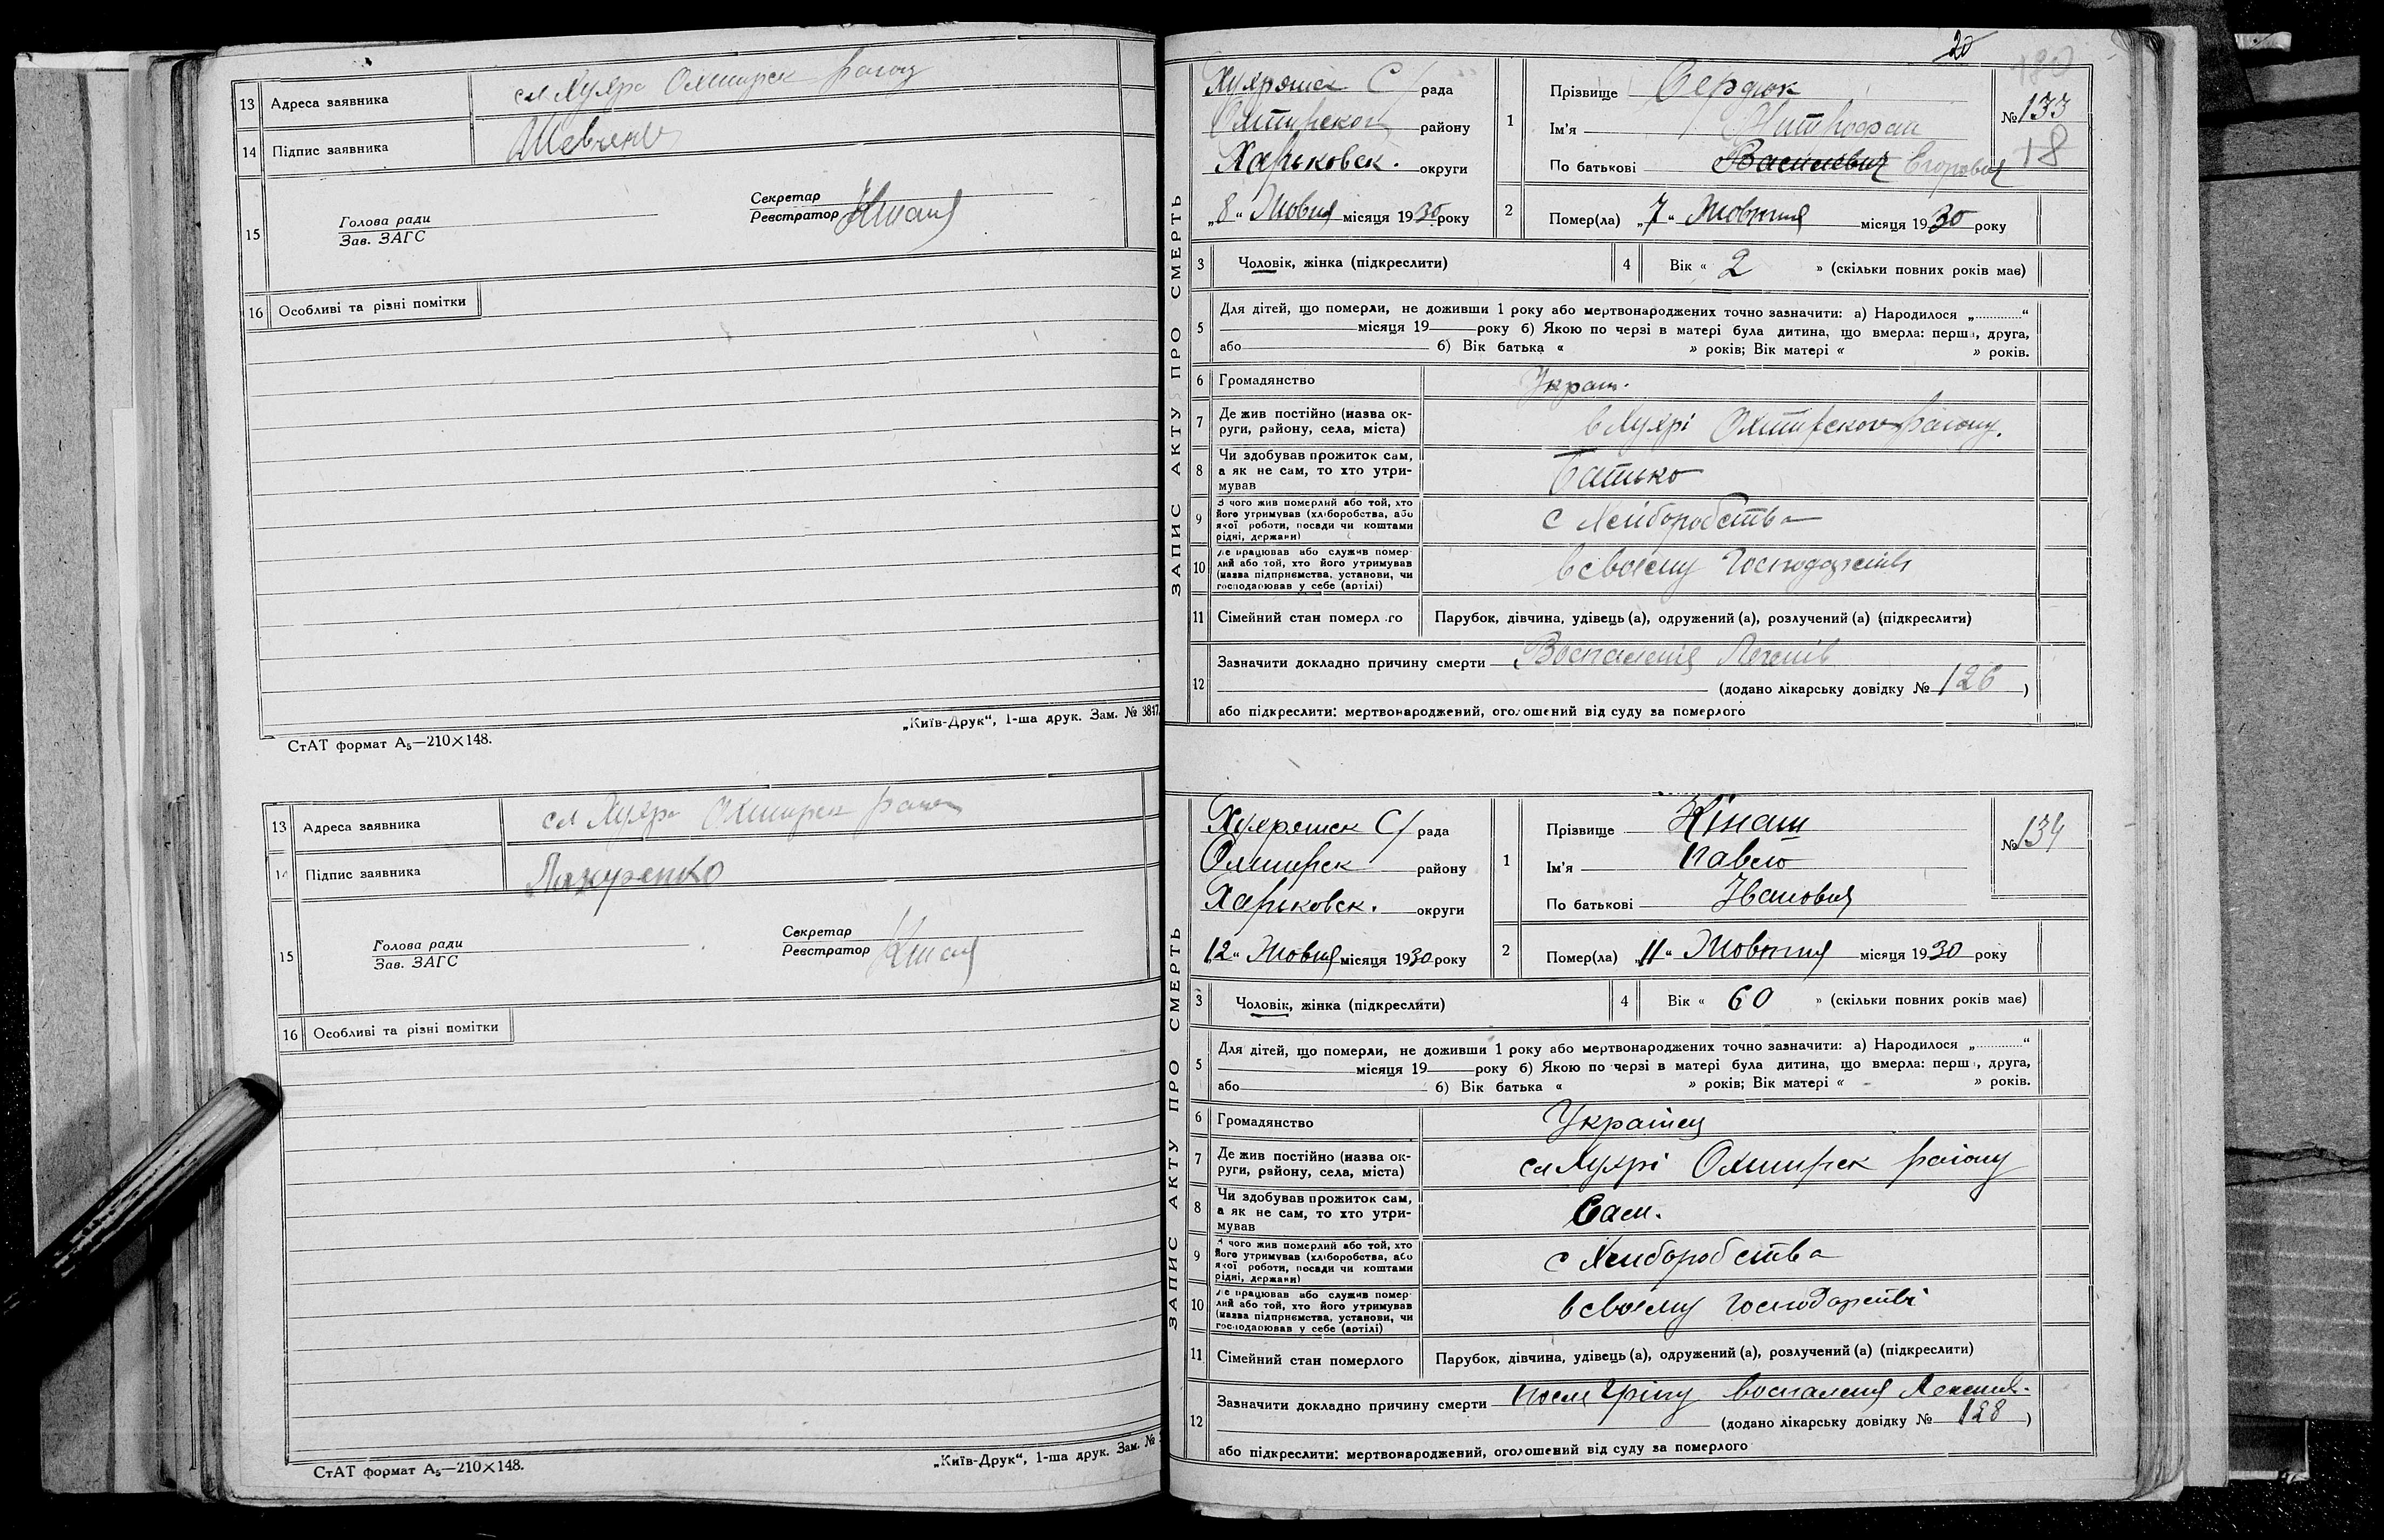 13 Адреса заявника сл Хухра Охтирск район
14 Підпис заявника Шевченко
15 Голова ради
Зав. ЗАГС
Секретар
Реєстратор
16 Особливі та різні помітки
„Київ-Друк“, 1-ша друк. Зам. № 3847.
СтАТ формат А₅—210×148.
13 Адреса заявника сл Хухра Охтирск район
14 Підпис заявника
15 Голова ради
Зав. ЗАГС
Секретар
Реєстратор
16 Особливі та різні помітки
„Київ-Друк“, 1-ша друк. Зам. №
СтАТ формат А₅—210×148.
20
180
ЗАПИС АКТУ ПРО СМЕРТЬ
Хухрянск С/рада
Охтирског району
Харьковск. округи
„8“ Жовня місяця 1930 року
1 Прізвище Сердюк
Ім'я Митрофан
По батькові Василевич Егорович
№ 133
18
2 Помер(ла) „7“ Жовтня місяця 1930 року
3 Чоловік, жінка (підкреслити)
4 Вік « 2 » (скільки повних років має)
5 Для дітей, що померли, не доживши 1 року або мертвонароджених точно зазначити: а) Народилося „............“
місяця 19 року б) Якою по черзі в матері була дитина, що вмерла: перша, друга,
або б) Вік батька « » років; Вік матері « » років.
6 Громадянство Украін.
7 Де жив постійно (назва округи, району, села, міста) в Хухрі Охтирского району.
8 Чи здобував прожиток сам,
а як не сам, то хто утримував Батько
9 З чого жив померлий або той, хто
його утримував (хліборобства, або
якої роботи, посади чи коштами
рідні, держави) с Хліборобства
10 Де працював або служив померлий або той, хто його утримував
(назва підприємства, установи, чи
господарював у себе (артілі) в своему господарстві
11 Сімейний стан померлого Парубок, дівчина, удівець (а), одружений (а), розлучений (а) (підкреслити)
12 Зазначити докладно причину смерти Воспаления Легенів
(додано лікарську довідку № 126 )
або підкреслити: мертвонароджений, оголошений від суду за померлого
ЗАПИС АКТУ ПРО СМЕРТЬ
Хухрянск С/рада
Охтирск району
Харьковск. округи
12“ Жовня місяця 1930 року
1 Прізвище Кінаш
Ім'я Павло
По батькові Іванович
№ 134
2 Помер(ла) „11“ Жовтня місяця 1930 року
3 Чоловік, жінка (підкреслити)
4 Вік « 60 » (скільки повних років має)
5 Для дітей, що померли, не доживши 1 року або мертвонароджених точно зазначити: а) Народилося „............“
місяця 19 року б) Якою по черзі в матері була дитина, що вмерла: перша, друга,
або б) Вік батька « » років; Вік матері « » років.
6 Громадянство Украінец
7 Де жив постійно (назва округи, району, села, міста) сл Хухрі Охтирск району
8 Чи здобував прожиток сам,
а як не сам, то хто утримував Сам.
9 З чого жив померлий або той, хто
його утримував (хліборобства, або
якої роботи, посади чи коштами
рідні, держави) с Хліборобства
10 Де працював або служив померлий або той, хто його утримував
(назва підприємства, установи, чи
господарював у себе (артілі) в своему господарстві
11 Сімейний стан померлого Парубок, дівчина, удівець (а), одружений (а), розлучений (а) (підкреслити)
12 Зазначити докладно причину смерти после Гріпу воспаления
(додано лікарську довідку № 128 )
або підкреслити: мертвонароджений, оголошений від суду за померлого